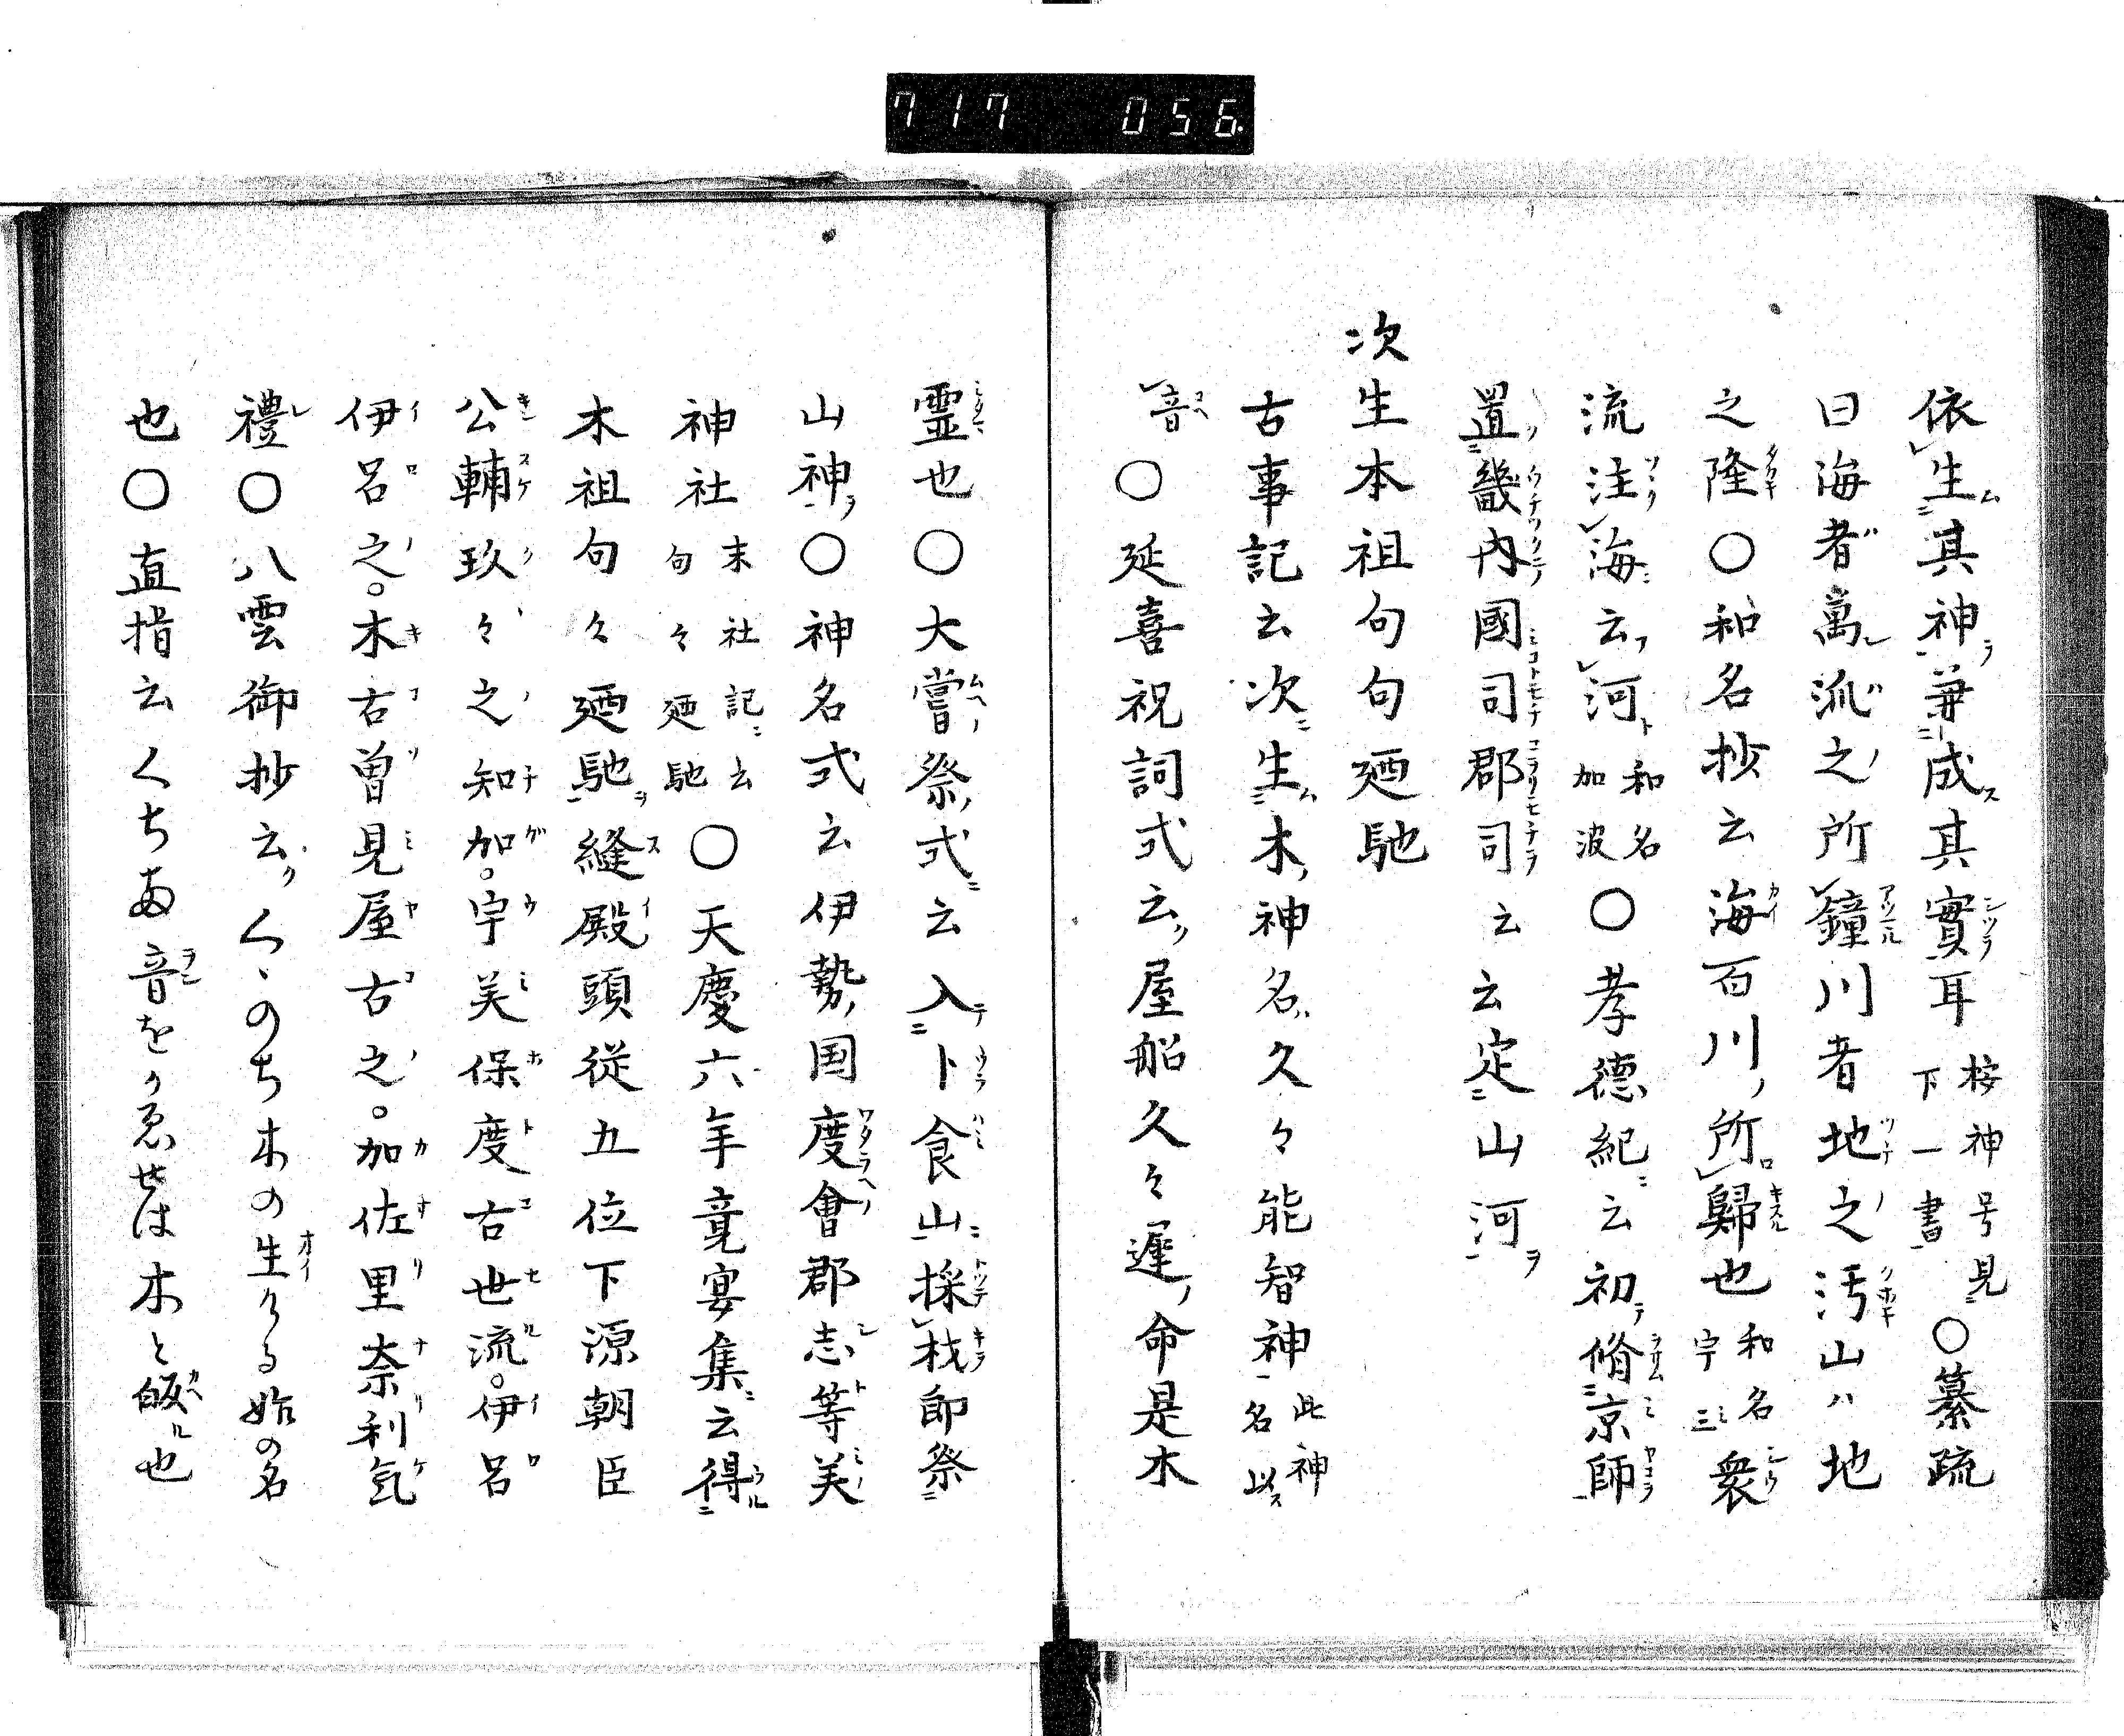 717 056
依生其神兼成其實耳 按神号見下一書 ○纂疏
曰海者萬流之所鐘川者地之汚山ハ地
之隆○和名抄云海百川ノ所歸也 和名宇三 衆
流注海云河 和名加波 ○孝德紀云初脩京師
置畿内國司郡司云云定山河
次生木祖句句廼馳
古事記云次生木神名久々能智神 此神名以
音 ○延喜祝詞式云屋船久々遲命是木
霊也○大嘗祭式云入卜食山採材即祭
山神○神名式云伊勢国度會郡志等美
神社 末社記云句々廼馳 ○天慶六年竟宴集云得
木祖句々廼馳縫殿頭従五位下源朝臣
公輔玖々之知加。宇美保度古世流。伊呂
伊呂之。木古曽見屋古之。加佐里奈利気
禮○八雲御抄云くゝのち木の生ける始の名
也○直指云くちあ音をりゑせは木と皈ル也